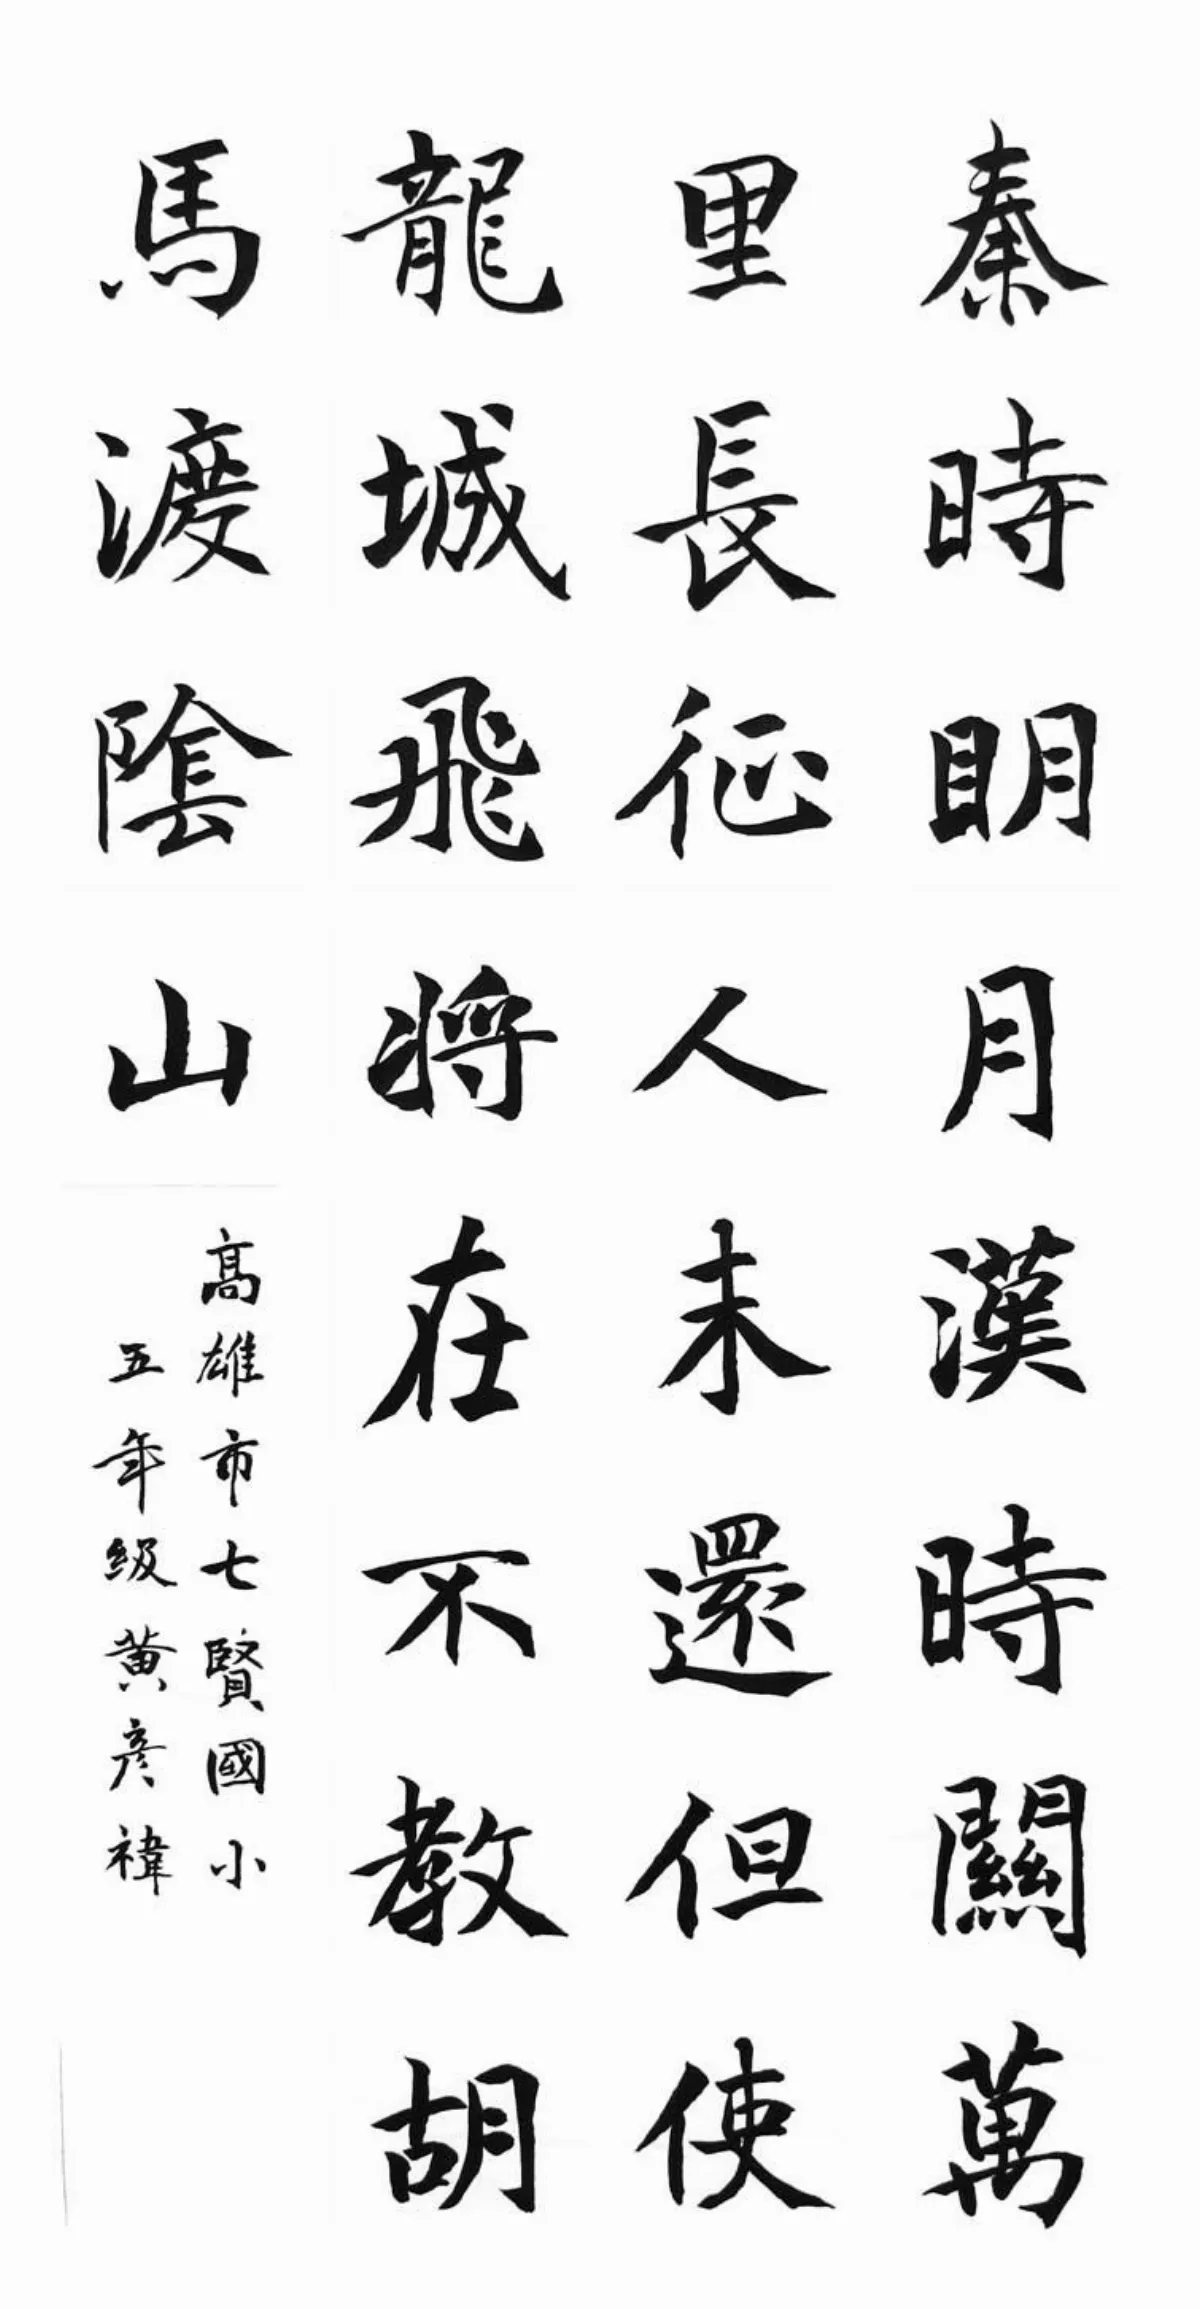 秦時明月漢時關萬
里長征人未還但使
龍城飛將在不教胡
馬渡陰山
高雄市七賢國小
五年級黃彥禕